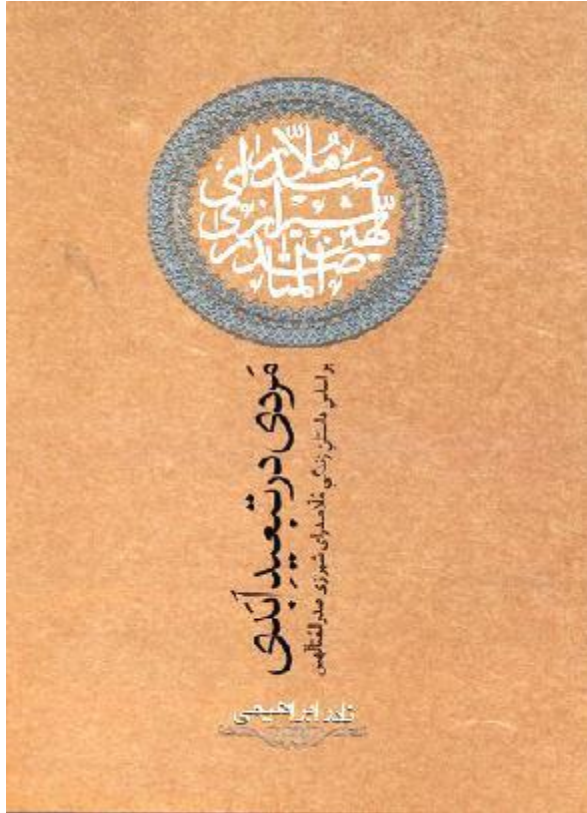 ملّا صدرای
شیرازی
صدرالمتألّهین
مَردی در تبعیدِ اَبَدی
بر اساسِ داستانِ زندگیِ مُلّاصدرای شیرازی صدرالمُتألّهین
نادر ابراهیمی